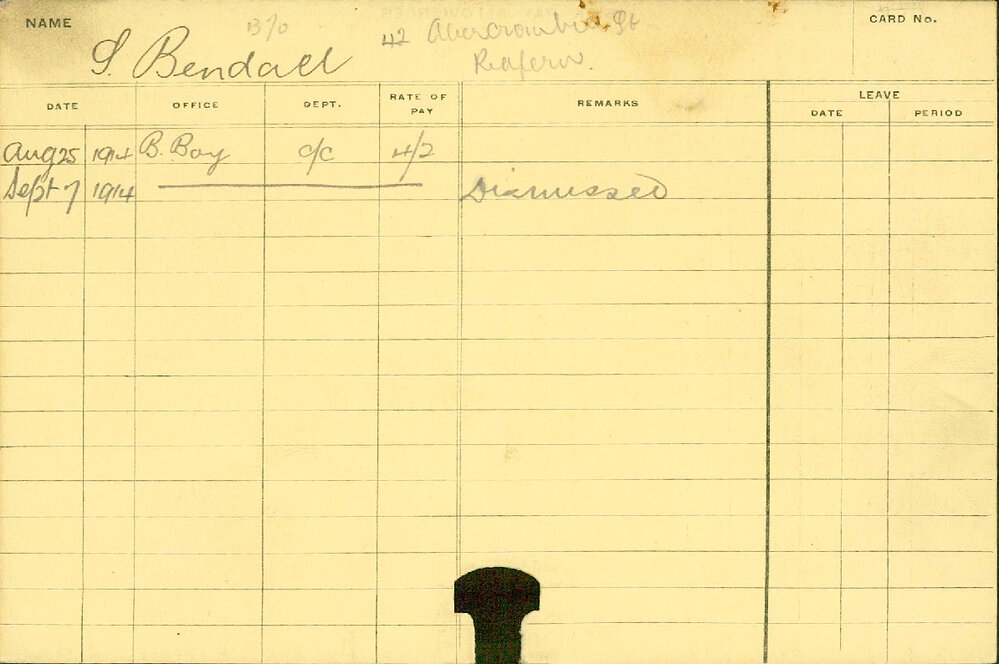 NAME B/o 42 Abercrombie St CARD No.
S. Bendall Redfern.
DATE OFFICE DEPT. RATE OF PAY REMARKS LEAVE
DATE PERIOD
Aug 25 1914 B. Boy c/c 4/2
Sept 7 1914 Dismissed